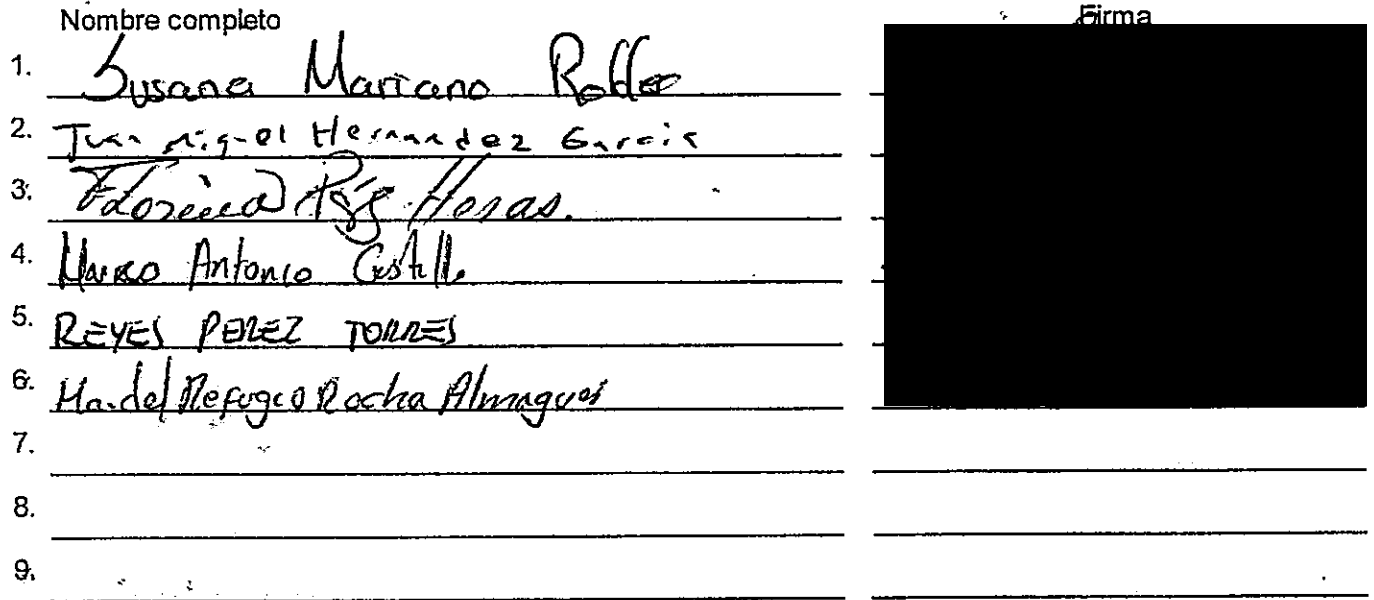 Nombre completo Firma
1. Susana Mariano
2. Juan Miguel Hernandez Garcia
3. Heras.
4. Marco Antonio Castillo
5. REYES PEREZ TORRES
6. Ma. del Refugio Rocha Almaguer
7.
8.
9.